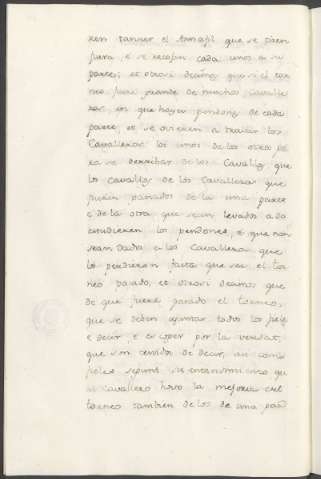 ren tanner el tanafil que se den
fuera, e se recojan cada unos a su
parte; et otrosi decimos que si el tor
neo fuere grande de muchos Cavalle
ros, en que haya pendones de cada
parte, et se vinieren a travar los
Cavalleros los unos de los otros pa
ra se derribar de los Cavallos, que
los cavallos de los Cavalleros que
fueren ganados de la una parte
e de la otra que sean levados a do
estudieren los pendones, e que non
sean dados a los Cavalleros que
los perdieren fasta que sea el tor
neo pasado, et otrosi decimos que
de que fuere pasado el torneo,
que se deben ajuntar todos los fieles
e decir e escoger por la verdat,
que son tenidos de decir, asi como
fieles segund su entendimiento que
el cavallero hizo la mejoria en el
torneo tambien de los de una part